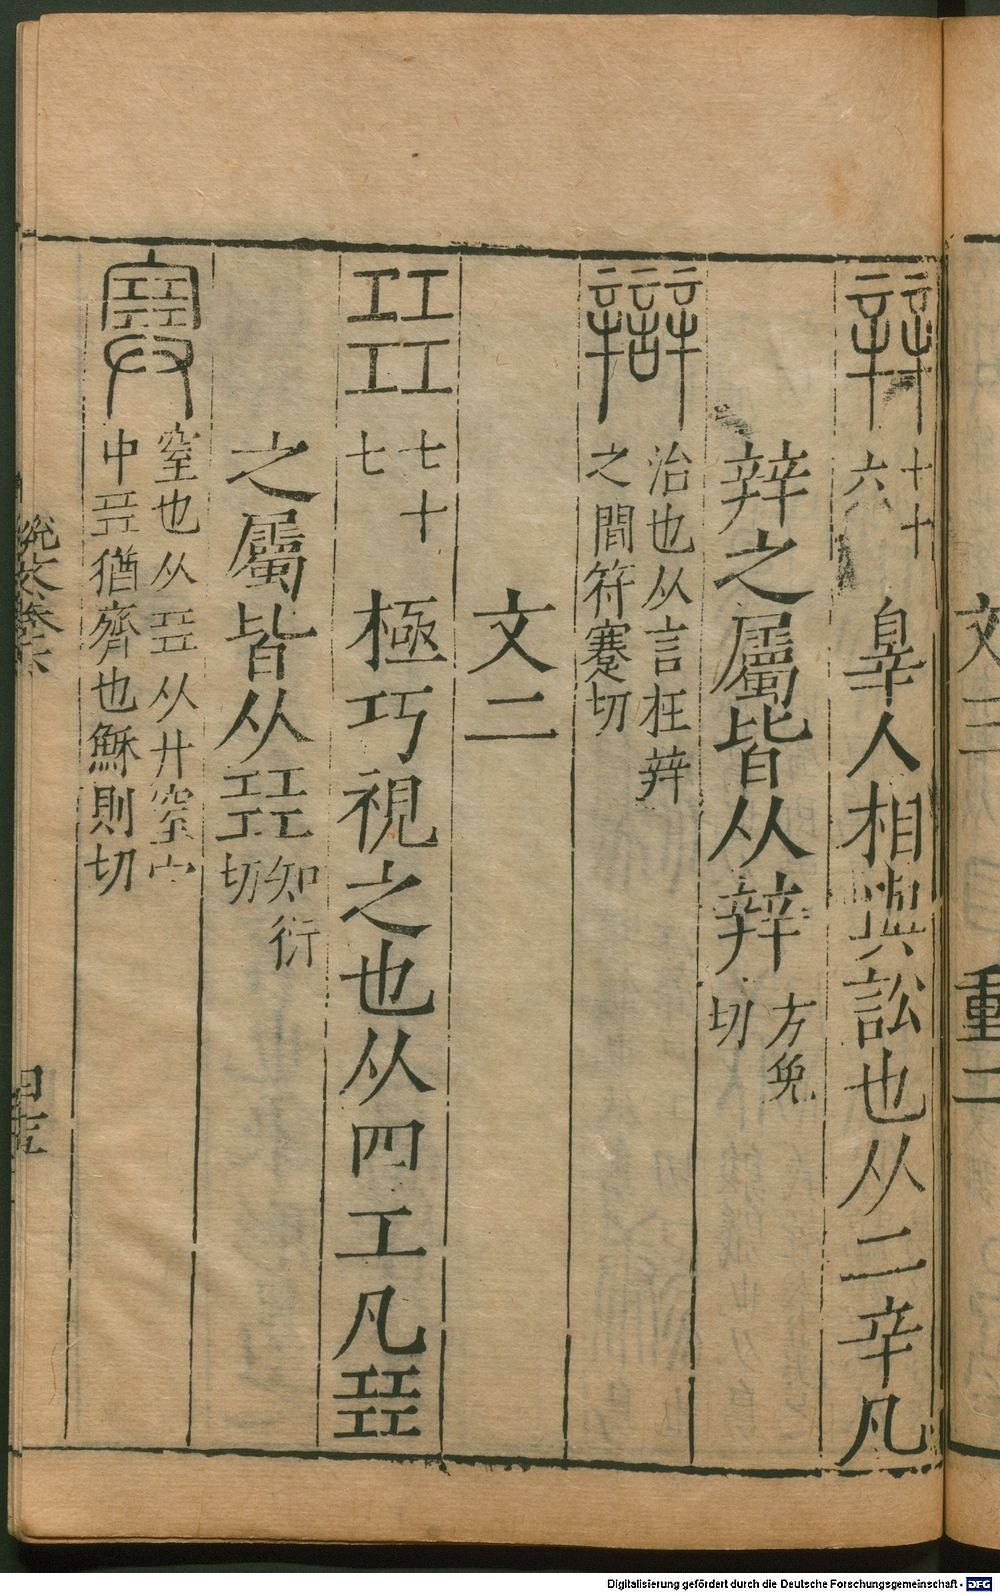 辡 十十六 辠人相與訟也从二辛凡
辡之屬皆从辡 方免切
辯 治也从言在辡之間符蹇切
文二
㠭 七十七 極巧視之也从四工凡㠭
之屬皆从㠭 知衍切
窒也从㠭从廾窒宀中㠭猶齊也穌則切
文三
重二
Digitalisierung gefördert durch die Deutsche Forschungsgemeinschaft - DFG